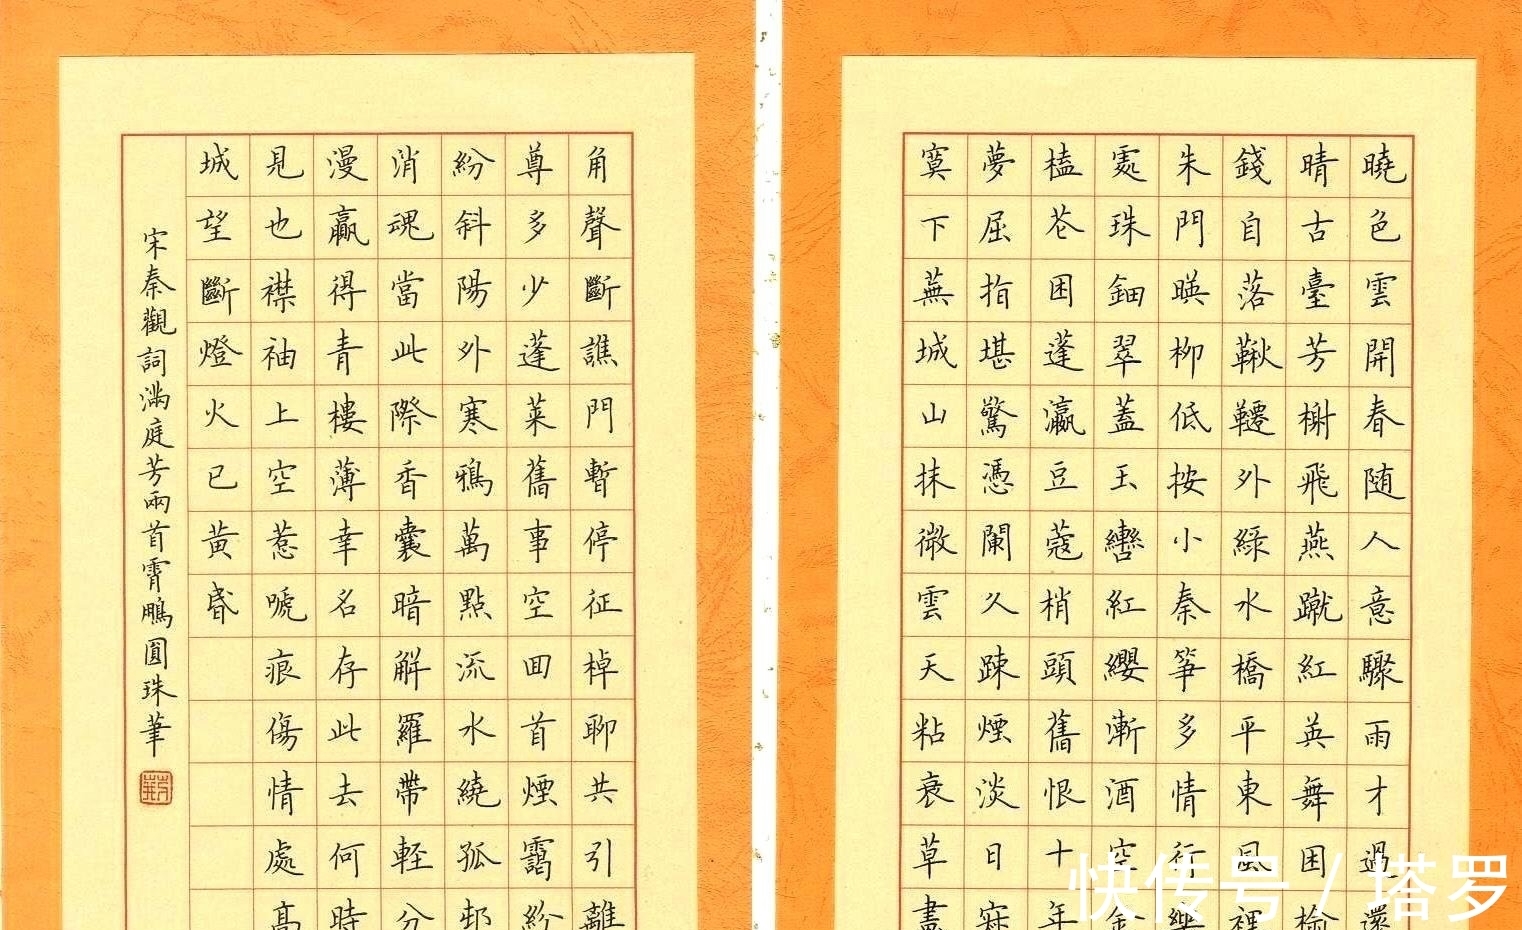 曉色雲開春随人意驟雨才過還
晴古臺芳榭飛燕蹴紅英舞困榆
錢自落鞦韆外綠水橋平東風裡
朱門暎柳低按小秦箏多情行樂
處珠鈿翠蓋玉轡紅纓漸酒空金
榼花困蓬瀛豆蔻梢頭舊恨十年
夢屈指堪驚憑闌久踈煙淡日寂
寞下蕪城山抹微雲天粘衰草畫
角聲斷譙門暫停征棹聊共引離
尊多少蓬萊舊事空回首煙靄紛
紛斜陽外寒鴉萬點流水繞孤邨
消魂當此際香囊暗解羅帶輕分
漫贏得青樓薄幸名存此去何時
見也襟袖上空惹嗁痕傷情處高
城望斷燈火已黃昏
宋秦觀詞滿庭芳兩首霄鵬圓珠筆
快传号 / 塔罗